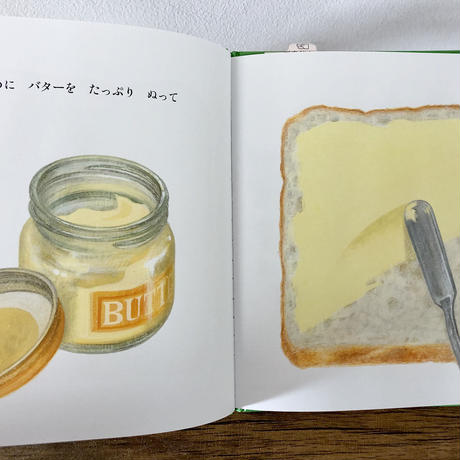 に バターを たっぷり ぬって
BUTT